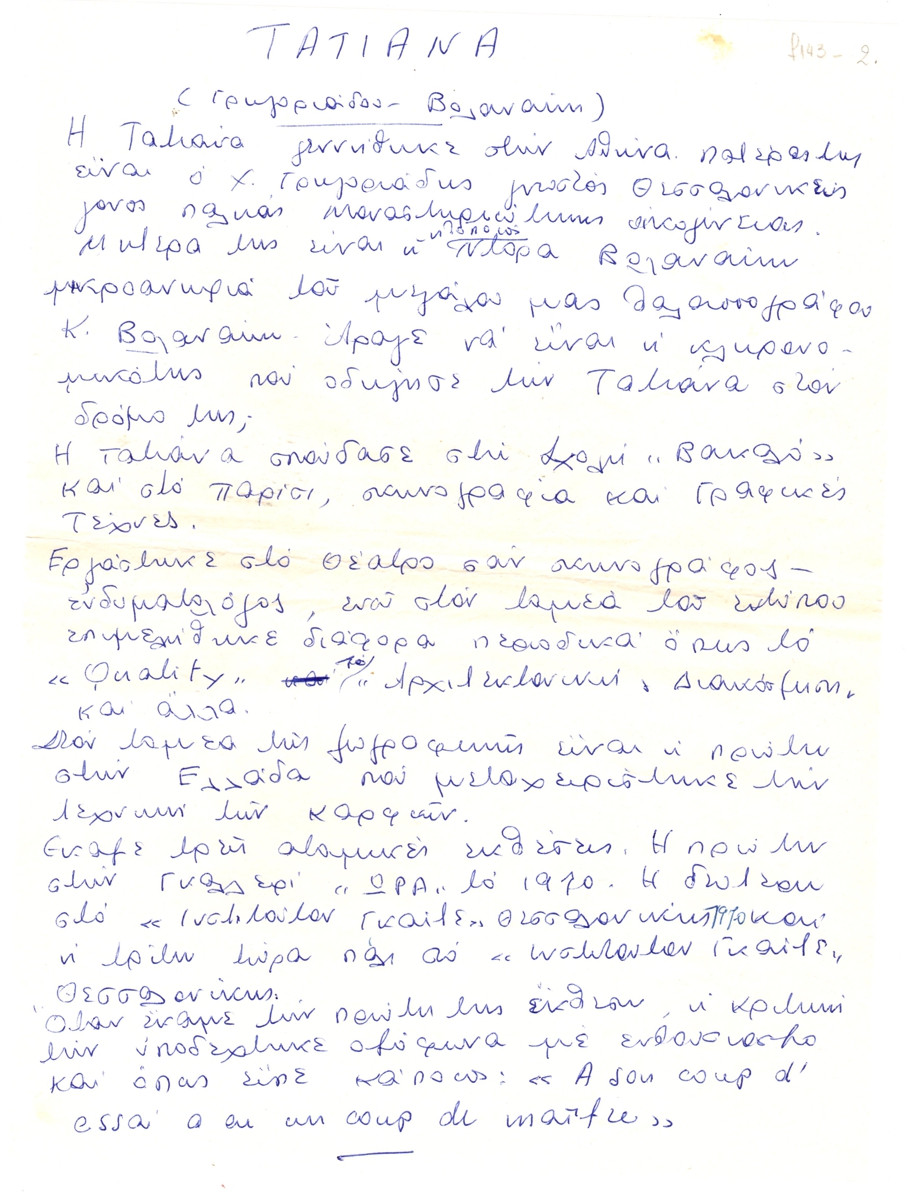 ΤΑΤΙΑΝΑ
P143 - 2.
(Γρηγοριάδου - Βολανάκη)
Η Τατιάνα γεννήθηκε στήν Αθήνα. πατέρας της
είναι ὁ Χ. Γρηγοριάδης γνωστός Θεσσαλονικεύς
γόνος παληάς Μοναστηριώτικης οικογένειας.
Μητέρα της είναι ἡ ηθοποιός Ντόρα Βολανάκη
μικροανηψιά τοῦ μεγάλου μας θαλασσογράφου
Κ. Βολανάκη. Άραγε νά εἶναι ἡ κληρονο-
μικότης πού οδήγησε τήν Τατιάνα στόν
δρόμο της;
Η Τατιάνα σπούδασε στή Σχολή "Βακαλό»
καί στό Παρίσι, σκηνογραφία καί Γραφικές
Τέχνες.
Εργάστηκε στό Θέατρο σάν σκηνογράφος -
ενδυματολόγος, ενῶ στόν τομέα τοῦ εντύπου
επιμελήθηκε διάφορα περιοδικά ὅπως τό
«Quality" τό "Αρχιτεκτονική, Διακόσμηση"
καί ἄλλα.
Στόν τομέα τῆς ζωγραφικῆς εἶναι ἡ πρώτη
στήν Ελλάδα πού μεταχειρίστηκε τήν
τεχνική τῶν καρφιῶν.
Εκαμε τρεῖς ατομικές εκθέσεις. Η πρώτη
στήν Γκαλλερί "ΩΡΑ" τό 1970. Η δεύτερη
στό «Ινστιτοῦτον Γκαῖτε» Θεσσαλονίκης 1970 καί
ἡ τρίτη τώρα πάλι στό «Ινστιτοῦτον Γκαῖτε"
Θεσσαλονίκης.
Ὅταν ἔκαμε τήν πρώτη της ἔκθεση, ἡ κριτική
τήν ὑποδέχτηκε ομόφωνα μέ ενθουσιασμό
καί ὅπως εἶπε κάποιος: « A son coup d'
essai a eu un coup de maître»